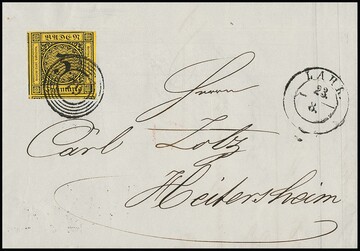 BADEN
LAHR
23
8.
Herrn
Carl Lotz
Heitersheim